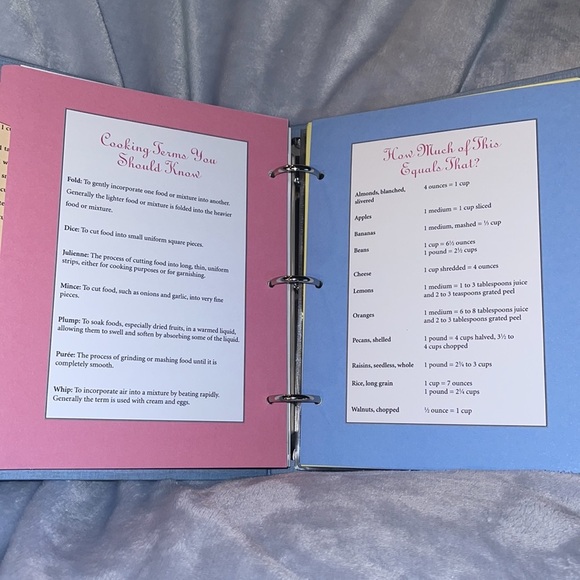 Cooking Terms You
Should Know
Fold: To gently incorporate one food or mixture into another.
Generally the lighter food or mixture is folded into the heavier
food or mixture.
Dice: To cut food into small uniform square pieces.
Julienne: The process of cutting food into long, thin, uniform
strips, either for cooking purposes or for garnishing.
Mince: To cut food, such as onions and garlic, into very fine
pieces.
Plump: To soak foods, especially dried fruits, in a warmed liquid,
allowing them to swell and soften by absorbing some of the liquid.
Purée: The process of grinding or mashing food until it is
completely smooth.
Whip: To incorporate air into a mixture by beating rapidly.
Generally the term is used with cream and eggs.
How Much of This
Equals That?
Almonds, blanched, 4 ounces = 1 cup
slivered
Apples 1 medium = 1 cup sliced
Bananas 1 medium, mashed = ⅓ cup
Beans 1 cup = 6½ ounces
1 pound = 2½ cups
Cheese 1 cup shredded = 4 ounces
Lemons 1 medium = 1 to 3 tablespoons juice
and 2 to 3 teaspoons grated peel
Oranges 1 medium = 6 to 8 tablespoons juice
and 2 to 3 tablespoons grated peel
Pecans, shelled 1 pound = 4 cups halved, 3½ to
4 cups chopped
Raisins, seedless, whole 1 pound = 2¾ to 3 cups
Rice, long grain 1 cup = 7 ounces
1 pound = 2¼ cups
Walnuts, chopped ½ ounce = 1 cup